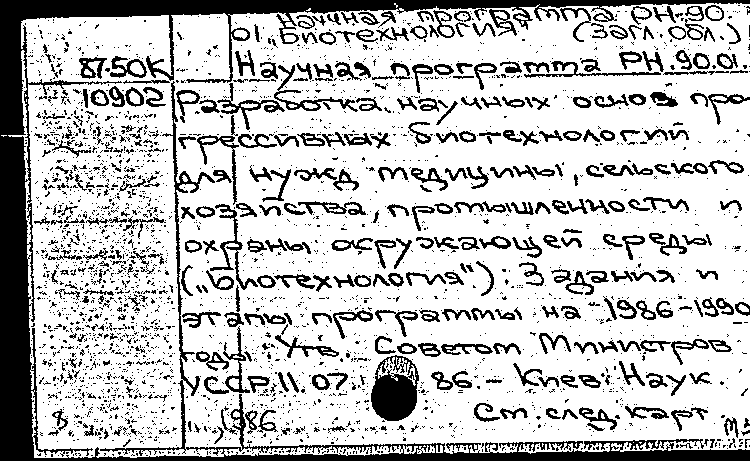 Научная программа РН.90.
01 „Биотехнология" (Загл. обл.)
87-50К Научная программа РН.90.01.
10902 Разработка научных основ про-
грессивных биотехнологий
для нужд медицины, сельского
хозяйства, промышленности и
охраны окружающей среды
(„Биотехнология"): Задания и
этапы программы на 1986-1990
годы: Утв. Советом Министров
УССР 11.07. 86. - Киев: Наук.
8 1986 См. след. карт.